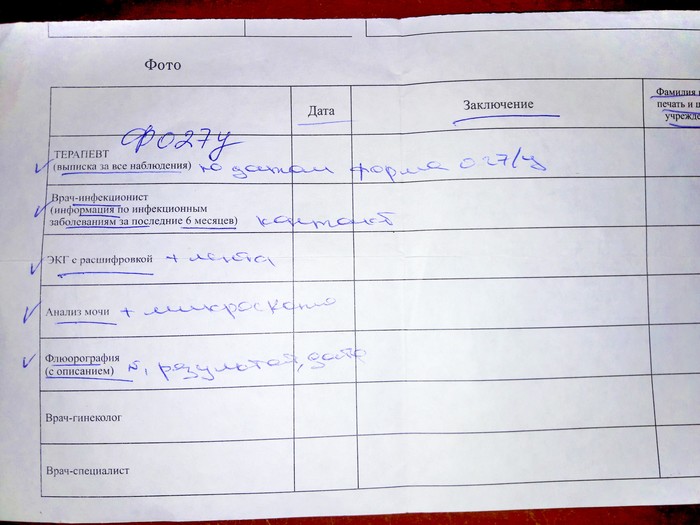 Фото
Дата
Заключение
Фамилия
печать и
Ф027у
ТЕРАПЕВТ
(выписка за все наблюдения) по датам форма 027/у
Врач-инфекционист
(информация по инфекционным
заболеваниям за последние 6 месяцев) контакт
ЭКГ с расшифровкой + лента
Анализ мочи +
Флюорография
(с описанием) №, результат, дата
Врач-гинеколог
Врач-специалист